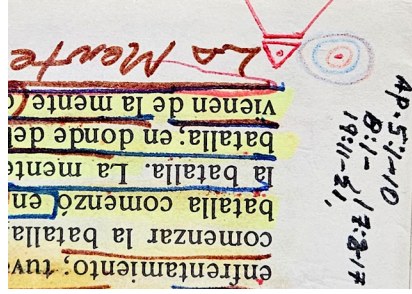 enfrentamiento; tuv
comenzar la batalla
batalla comenzó en
la batalla. La mente
batalla; en donde del
vienen de la mente (
La Mente
Ap. 5:1-10
8:1- 17:8-17
19:11-21,